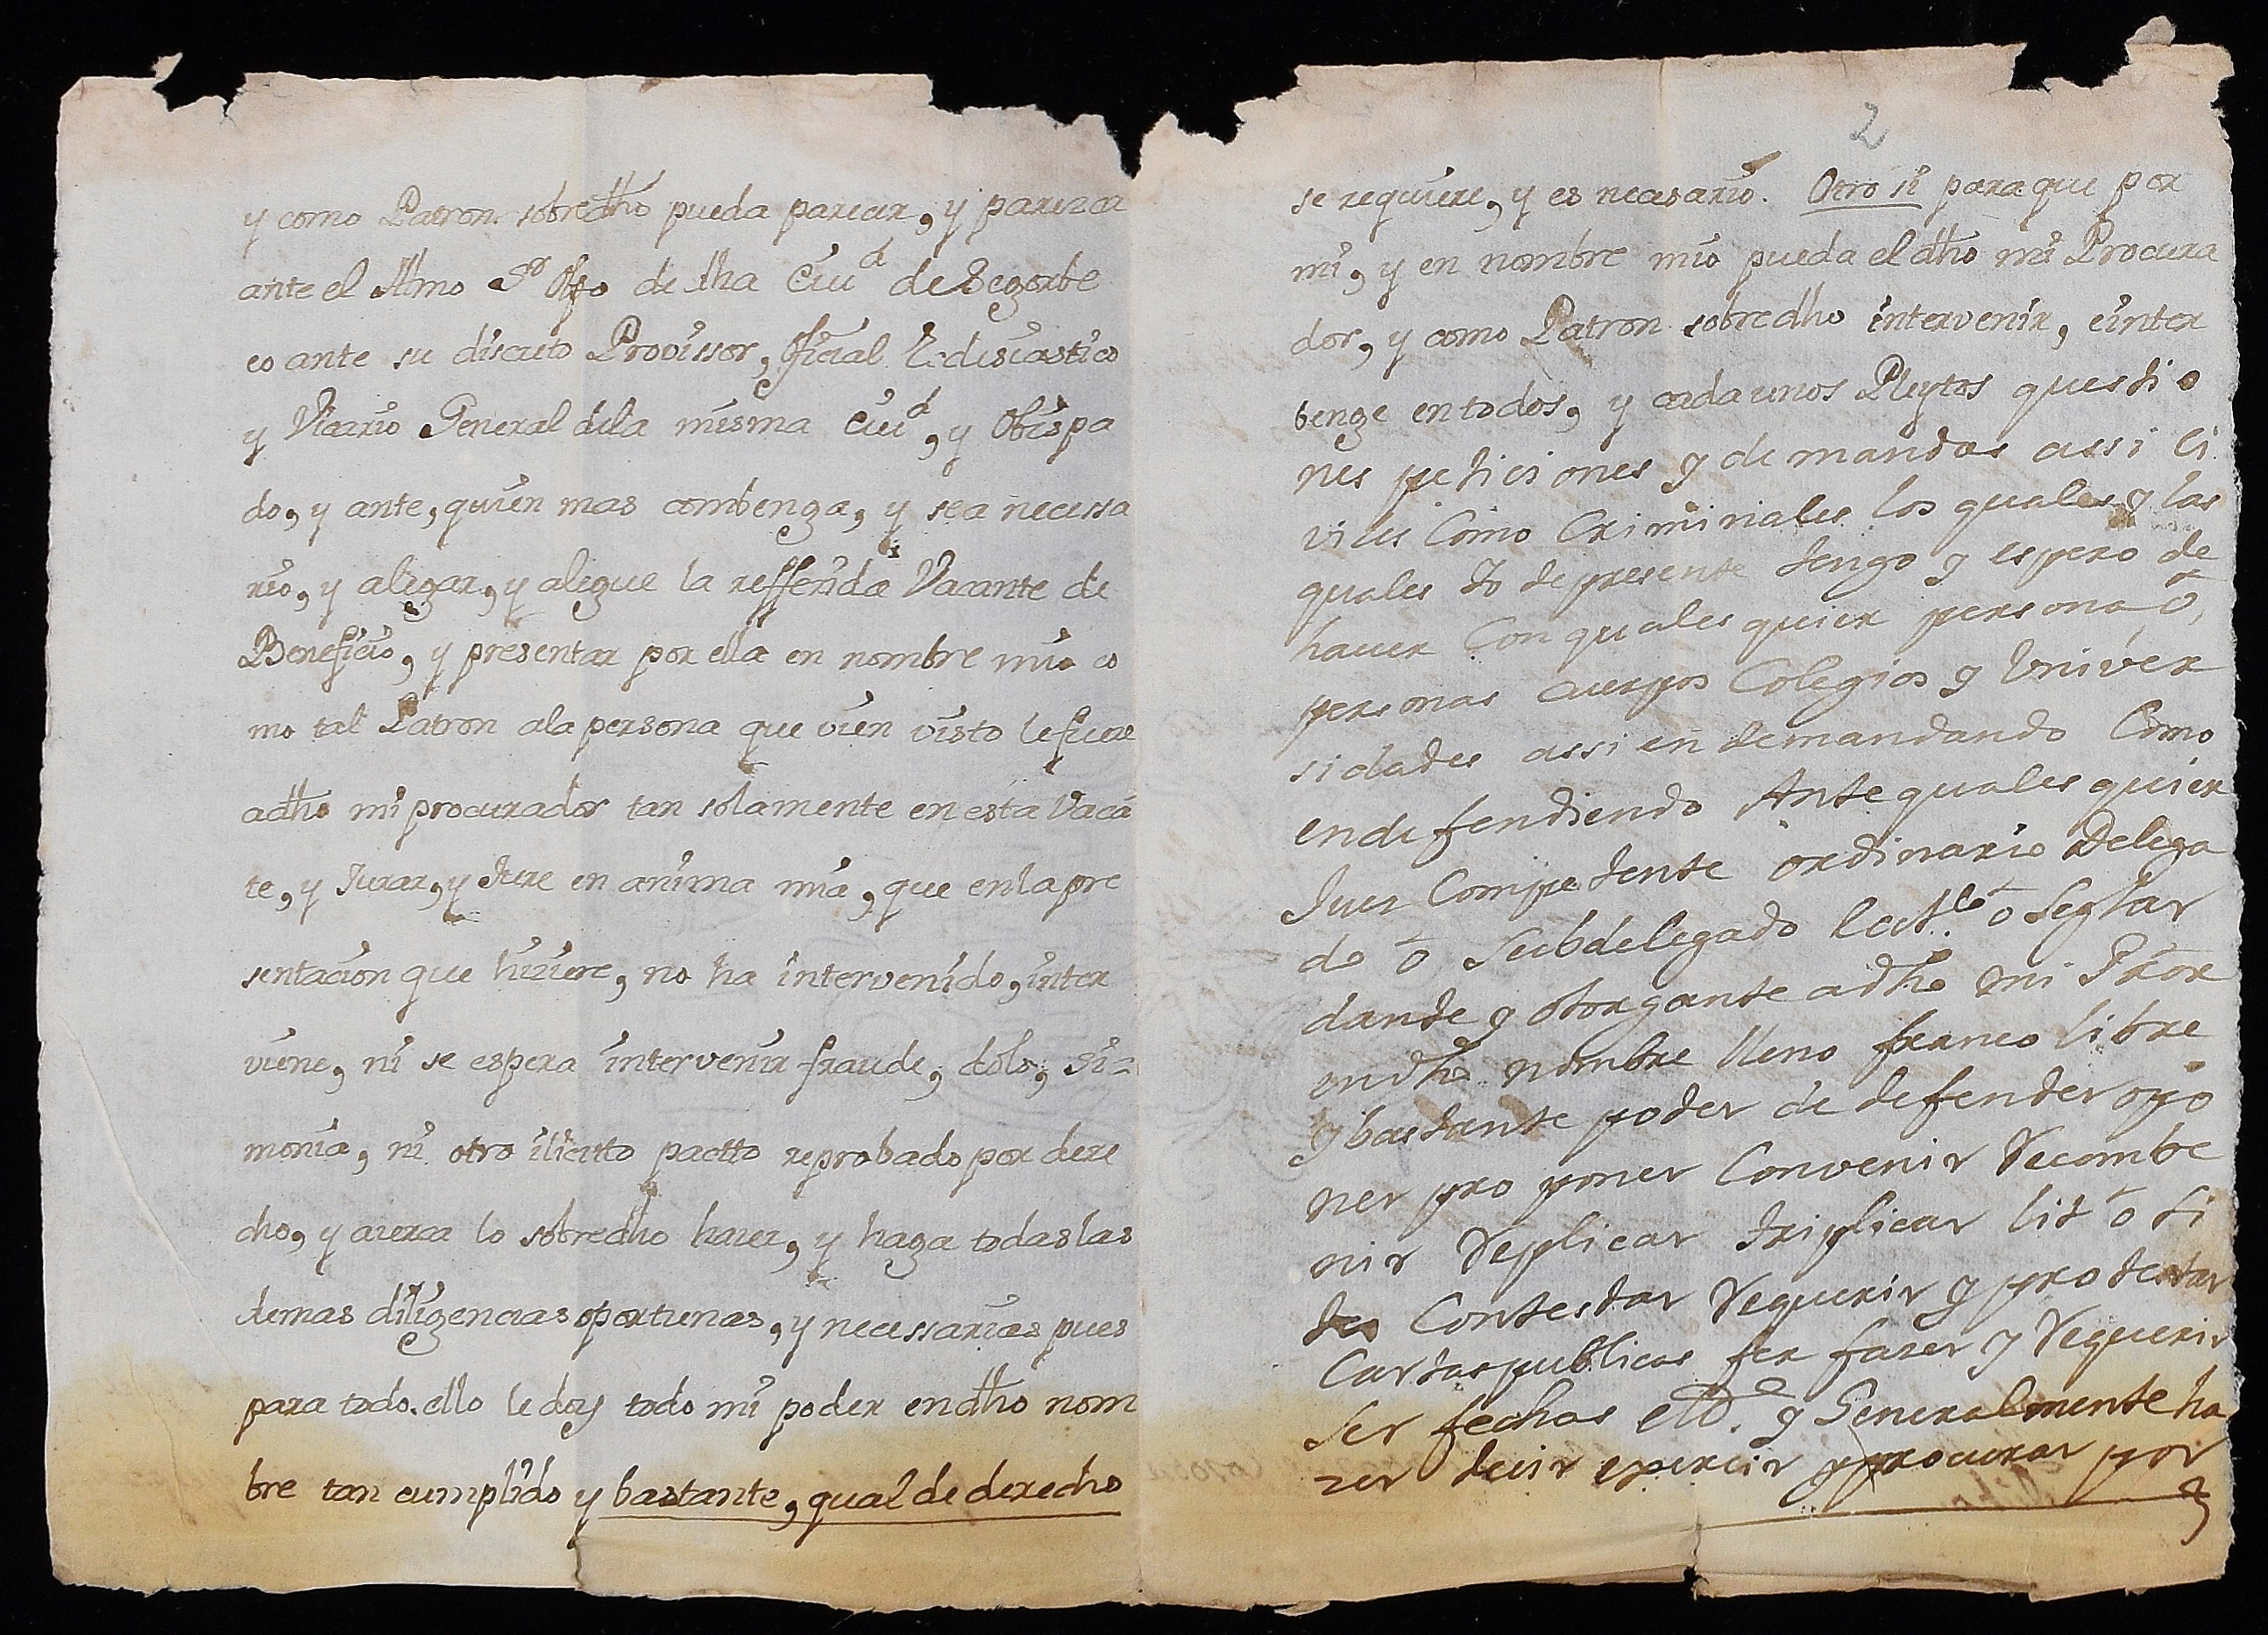 y como Patron sobredho pueda parecer, y parezca
ante el Illmo Sor Obpo de dha Ciud de Segorbe
eo ante su discreto Provissor, Oficial Eclesiastico
y Vicario General dela misma Ciud, y Obispa
do, y ante, quien mas combenga, y sea necessa
rio, y alegar, y alegue la refferida Vacante de
Beneficio, y presentar por ella en nombre mio co
mo tal Patron ala persona que vien visto lefuere
adho mi procurador tan solamente en esta Vacã
te, y Jurar, y Jure en anima mia, que enla pre
sentacion que hiziere, no ha intervenido, inter
viene, ni se espera intervenir fraude, dolo, si=
monia, ni otro ilicitto pactto reprobado por dere
cho, y acerca lo sobredho hacer, y haga todaslas
demas diligencias oportunas, y necessarias pues
para todo ello le doy todo mi poder endho nom
bre tan cumplido y bastante, qual de derecho
2
se requiere, y es necasario. Otro si para que por
mi, y en nombre mio pueda el dho mi Procura
dor, y como Patron sobredho intervenir, einter
benge entodos, y cada unos Pleytos questio
nes peticiones y demandas assi ci
viles Como Criminales los quales y las
quales Yo depresente tengo y espero de
hacer Con quales quier persona ō,
personas cuerpos Colegios y Univer
sidades assi en demandando Como
endefendiendo Ante quales quier
Juez Competente ordinario Delega
do ō Subdelegado Ecco ō Seglar
dante y otorgante adho mi Pror
endho nombre lleno franco libre
y bastante poder de defender opo
ner pro poner Convenir Recombe
nir Replicar triplicar lit ō li
tes Contestar Requerir y protestar
Cartas publicas fer fazer y Requerir
ser fechas etta. y Generalmente ha
zer decir exercir y procurar por